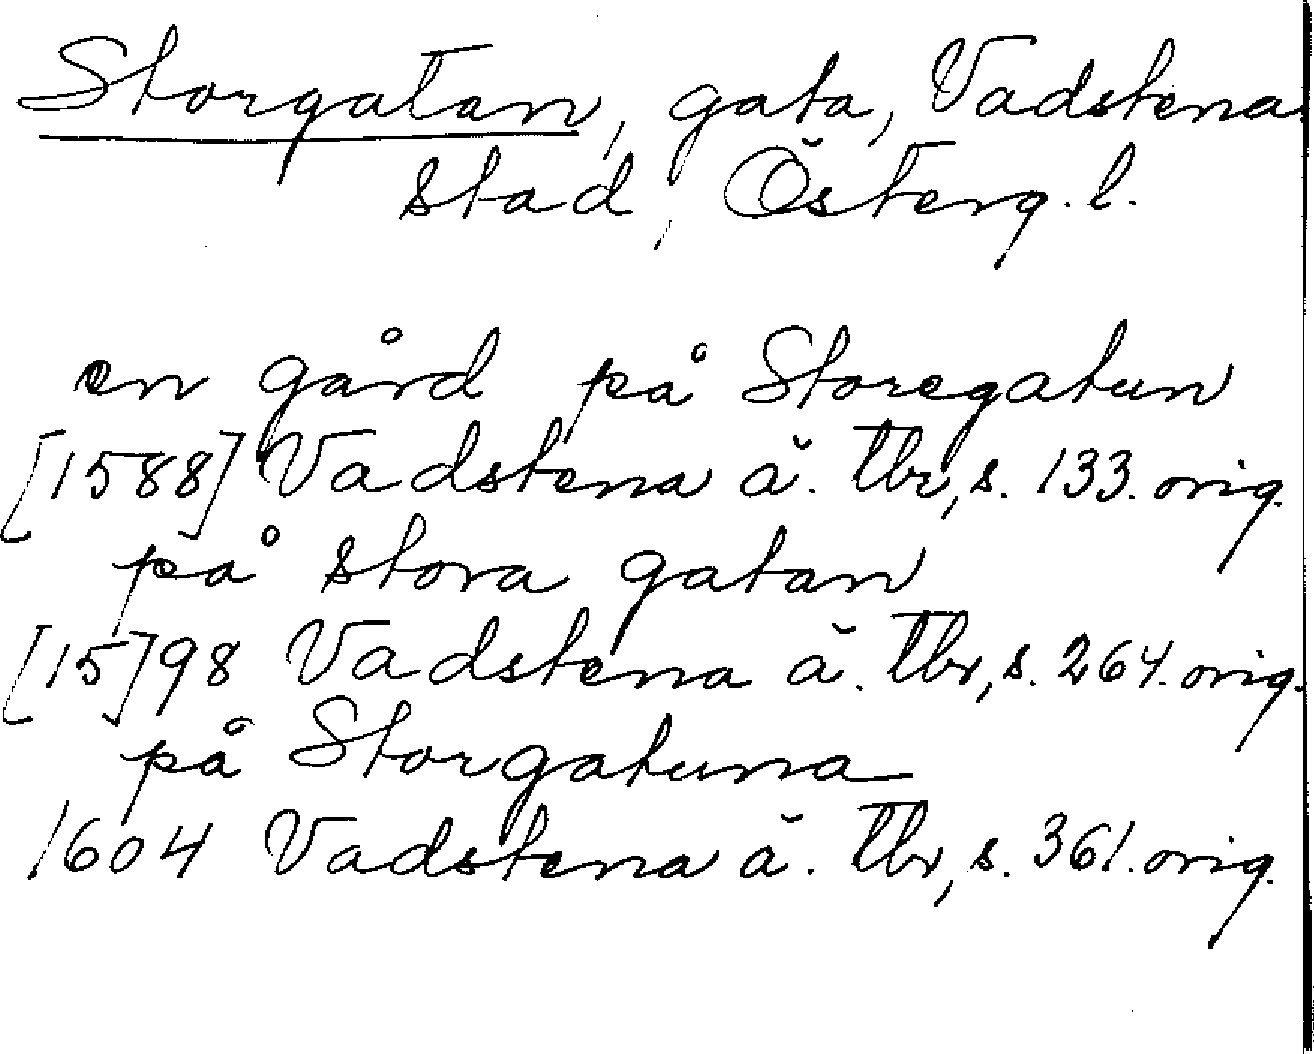 Storgatan, gata, Vadstena
stad, Österg. l.
en gård på Storegatun
[1588] Vadstena ä. Tbr, s. 133. orig.
på stora gatan
[15]98 Vadstena ä. Tbr, s. 264. orig.
på Storgatuna
1604 Vadstena ä. Tbr, s. 361. orig.